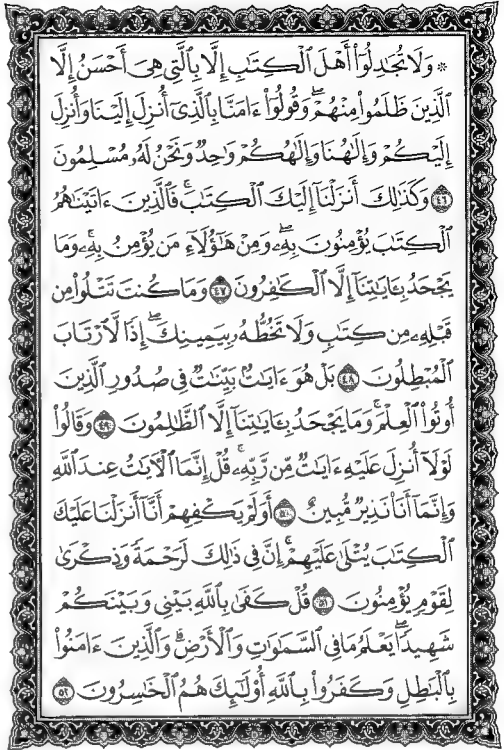 * وَلَا تُجَٰدِلُوٓا۟ أَهْلَ ٱلْكِتَٰبِ إِلَّا بِٱلَّتِى هِىَ أَحْسَنُ إِلَّا
ٱلَّذِينَ ظَلَمُوا۟ مِنْهُمْ ۖ وَقُولُوٓا۟ ءَامَنَّا بِٱلَّذِىٓ أُنزِلَ إِلَيْنَا وَأُنزِلَ
إِلَيْكُمْ وَإِلَٰهُنَا وَإِلَٰهُكُمْ وَٰحِدٌ وَنَحْنُ لَهُۥ مُسْلِمُونَ
٤٦ وَكَذَٰلِكَ أَنزَلْنَآ إِلَيْكَ ٱلْكِتَٰبَ ۚ فَٱلَّذِينَ ءَاتَيْنَٰهُمُ
ٱلْكِتَٰبَ يُؤْمِنُونَ بِهِۦ ۖ وَمِنْ هَٰٓؤُلَآءِ مَن يُؤْمِنُ بِهِۦ ۚ وَمَا
يَجْحَدُ بِـَٔايَٰتِنَآ إِلَّا ٱلْكَٰفِرُونَ ٤٧ وَمَا كُنتَ تَتْلُوا۟ مِن
قَبْلِهِۦ مِن كِتَٰبٍ وَلَا تَخُطُّهُۥ بِيَمِينِكَ ۖ إِذًا لَّٱرْتَابَ
ٱلْمُبْطِلُونَ ٤٨ بَلْ هُوَ ءَايَٰتٌۢ بَيِّنَٰتٌ فِى صُدُورِ ٱلَّذِينَ
أُوتُوا۟ ٱلْعِلْمَ ۚ وَمَا يَجْحَدُ بِـَٔايَٰتِنَآ إِلَّا ٱلظَّٰلِمُونَ ٤٩ وَقَالُوا۟
لَوْلَآ أُنزِلَ عَلَيْهِ ءَايَٰتٌ مِّن رَّبِّهِۦ ۖ قُلْ إِنَّمَا ٱلْـَٔايَٰتُ عِندَ ٱللَّهِ
وَإِنَّمَآ أَنَا۠ نَذِيرٌ مُّبِينٌ ٥٠ أَوَلَمْ يَكْفِهِمْ أَنَّآ أَنزَلْنَا عَلَيْكَ
ٱلْكِتَٰبَ يُتْلَىٰ عَلَيْهِمْ ۚ إِنَّ فِى ذَٰلِكَ لَرَحْمَةً وَذِكْرَىٰ
لِقَوْمٍ يُؤْمِنُونَ ٥١ قُلْ كَفَىٰ بِٱللَّهِ بَيْنِى وَبَيْنَكُمْ
شَهِيدًا ۖ يَعْلَمُ مَا فِى ٱلسَّمَٰوَٰتِ وَٱلْأَرْضِ ۗ وَٱلَّذِينَ ءَامَنُوا۟
بِٱلْبَٰطِلِ وَكَفَرُوا۟ بِٱللَّهِ أُو۟لَٰٓئِكَ هُمُ ٱلْخَٰسِرُونَ ٥٢